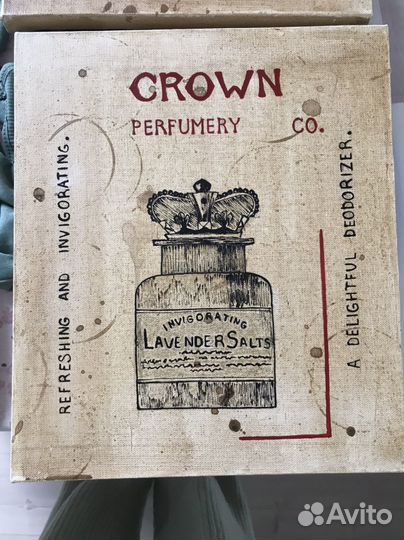 CROWN
PERFUMERY CO.
REFRESHING AND INVIGORATING.
INVIGORATING
LAVENDER SALTS
A DELIGHTFUL DEODORIZER.
Avito